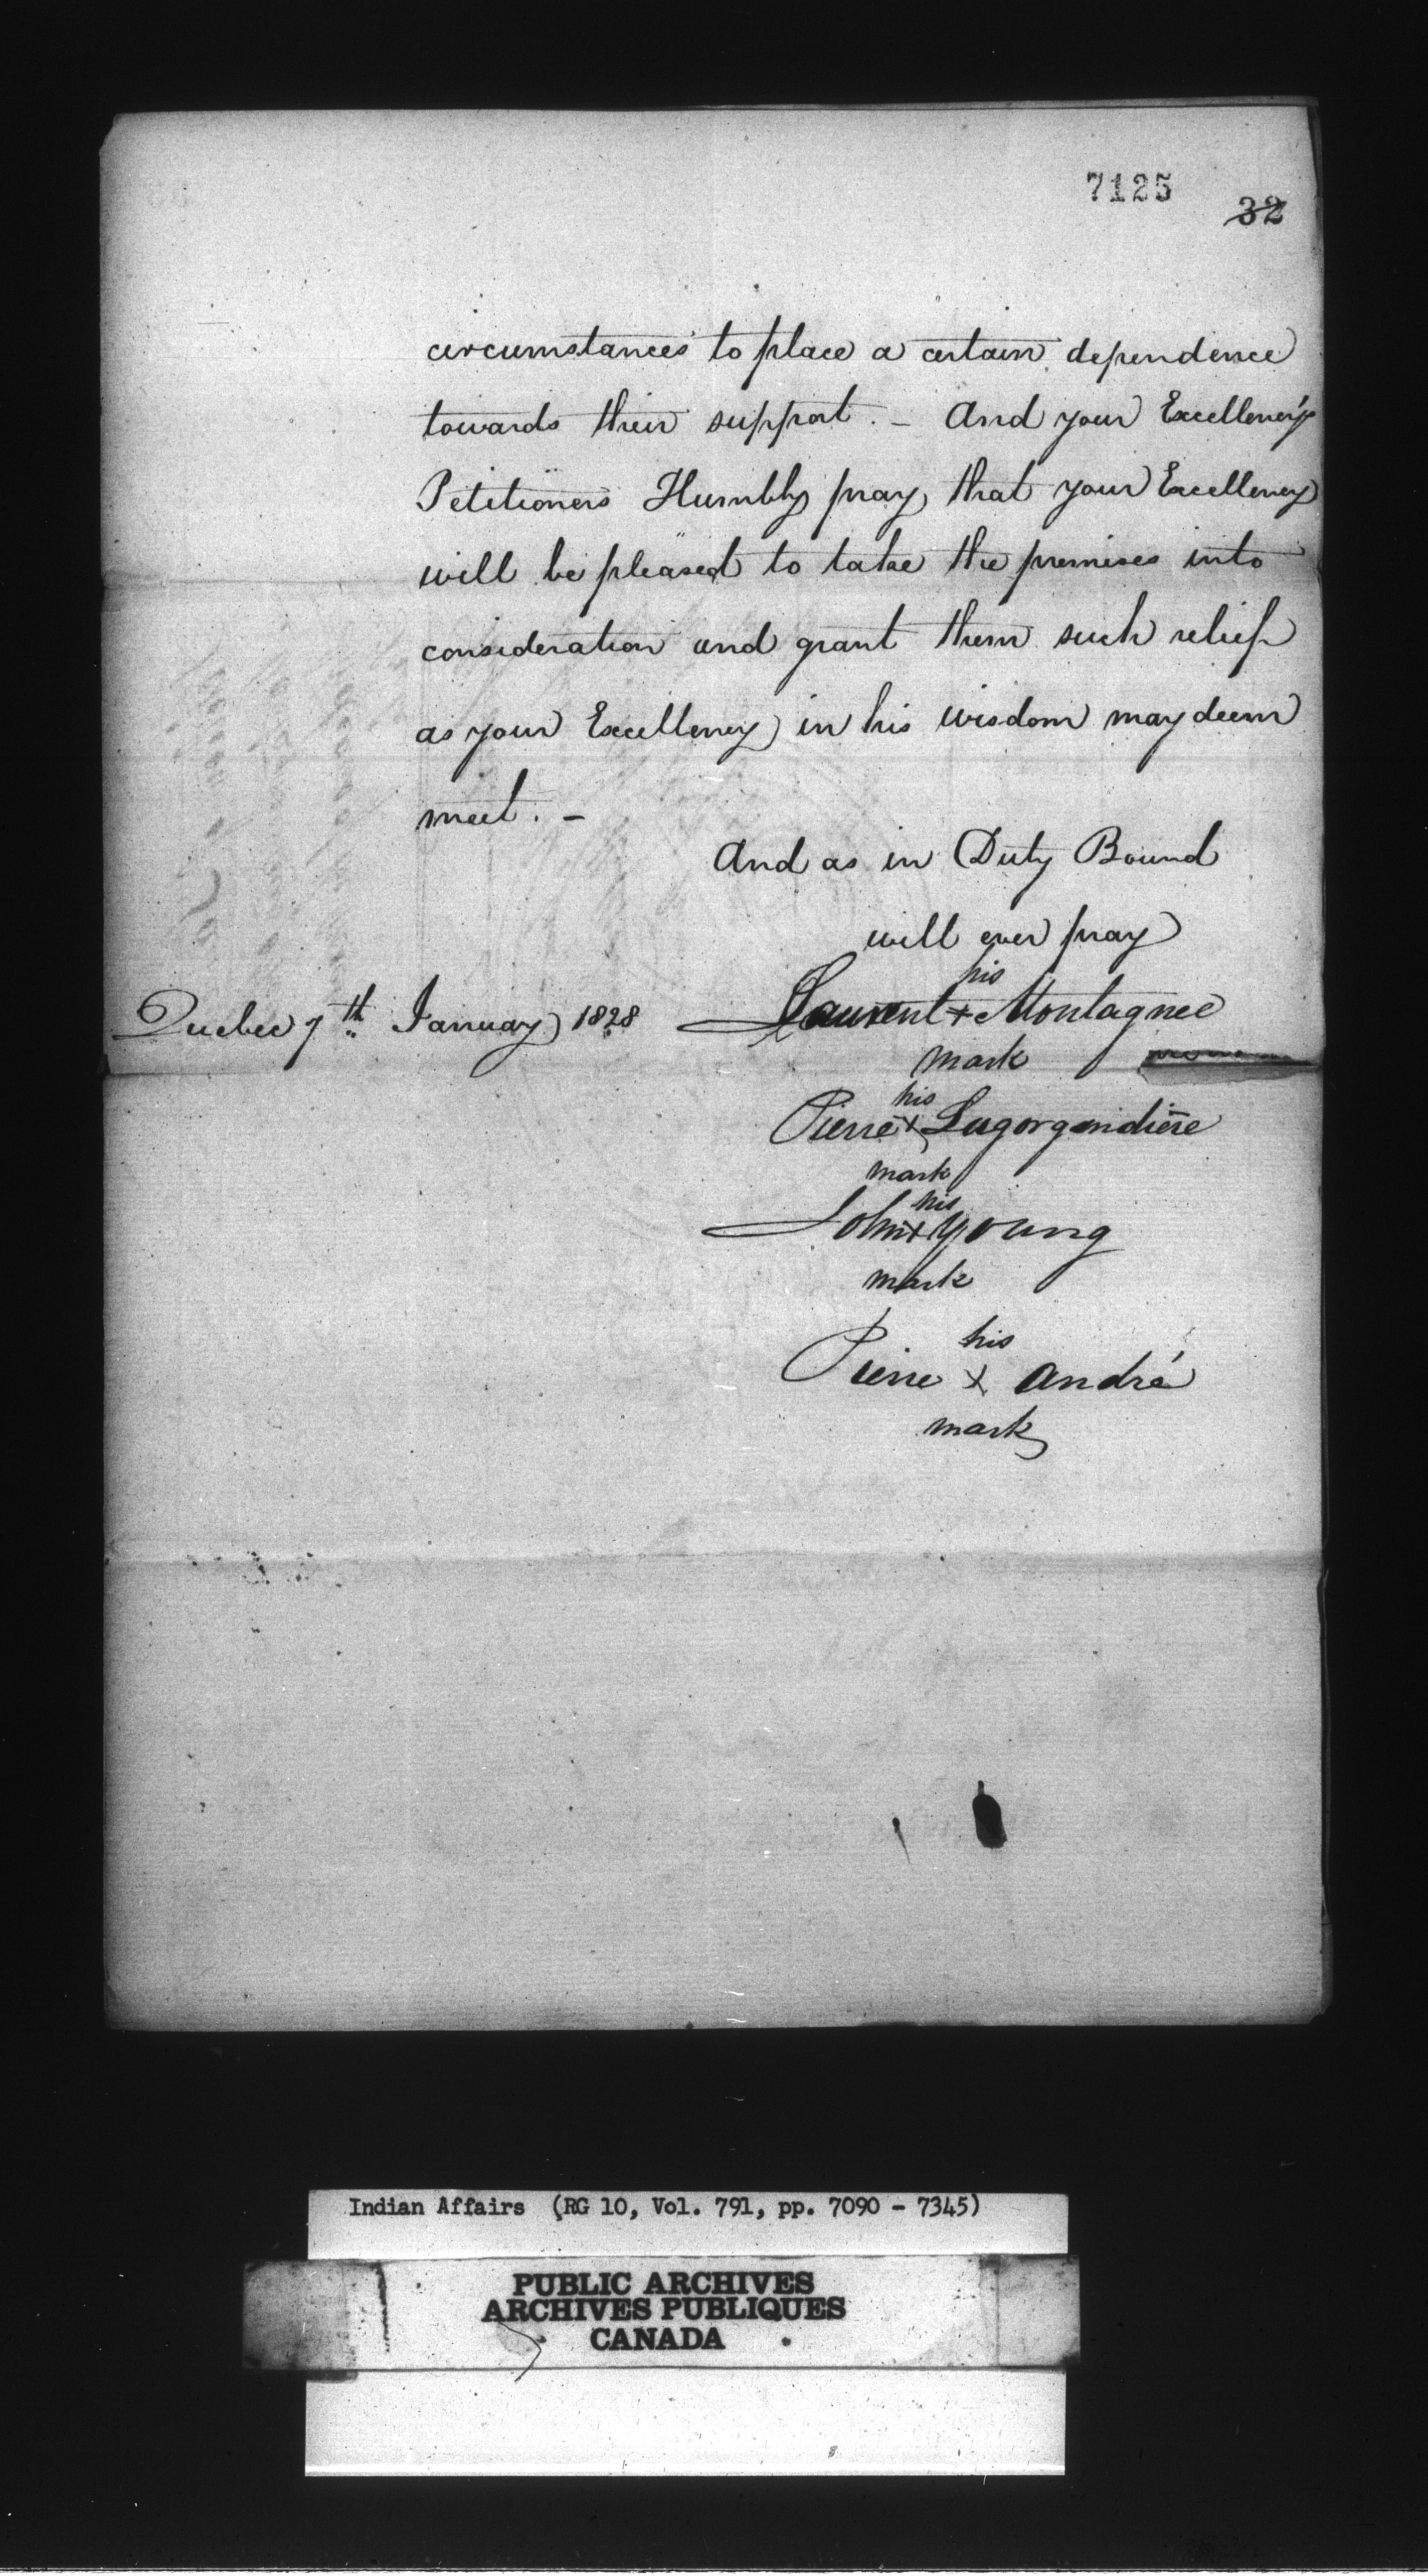 7125
32
circumstances to place a certain dependence
towards their support. — And your Excellency's
Petitioners Humbly pray, that your Excellency
will be pleased to take the premises into
consideration and grant them such relief
as your Excellency in his wisdom may deem
meet. —
And as in Duty Bound
will ever pray
his
Quebec 7th January 1828 Laurent + Montagnee
mark
his
Pierre x Lagorgendière
mark
his
John x Young
mark
his
Pierre x André
mark
Indian Affairs (RG 10, Vol. 791, pp. 7090 - 7345)
PUBLIC ARCHIVES
ARCHIVES PUBLIQUES
CANADA